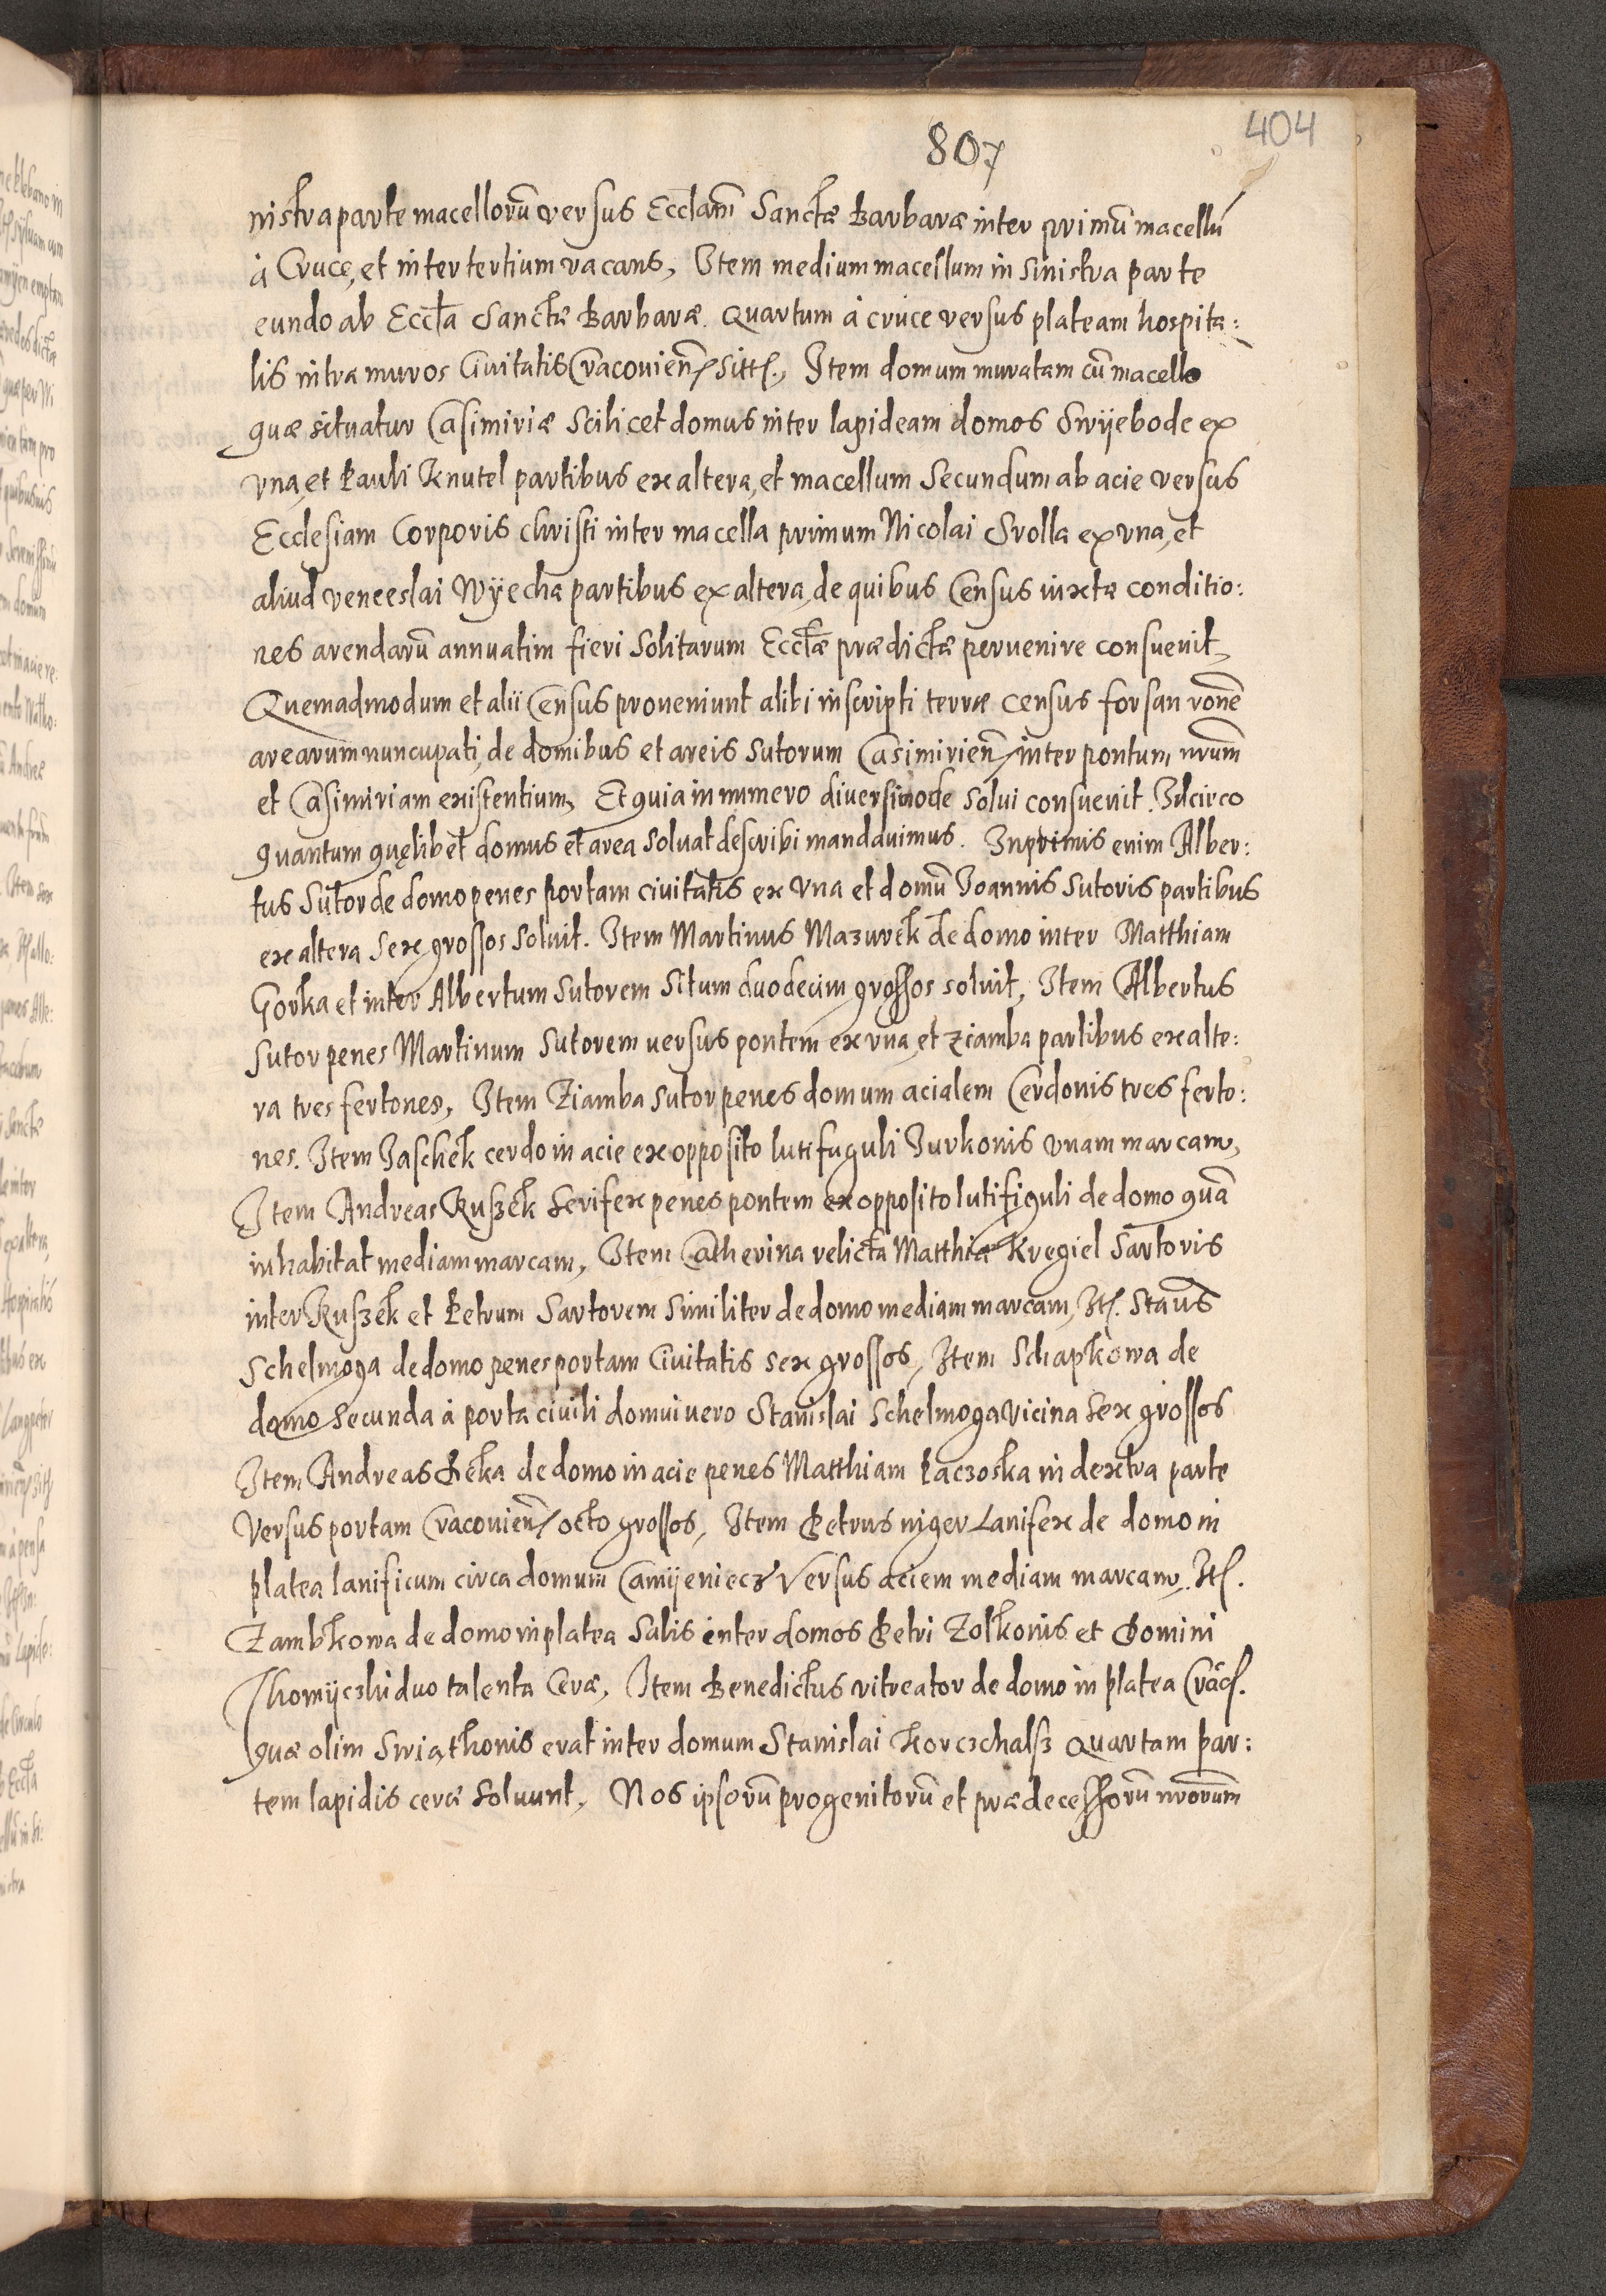 404
807
nistra parte macellorū versus Eccłam̄ Sanctæ Barbaræ inter primū macellū
à Cruce, et inter tertium vacans, Item medium macellum in sinistra parte
eundo ab Eccła Sanctæ Barbaræ. Quartum à cruce versus plateam hospita:
lis intra muros Civitatis Cracovien̄ sitt. Item domum muratam cū macello
quæ situatur Casimiriæ Scilicet domus inter lapideam domos Swÿebode ex
vna, et Pauli Knutel partibus ex altera, et macellum Secundum ab acie versus
Ecclesiam Corporis christi inter macella primum Nicolai Srolla ex vna, et
aliud venceslai Wÿecha partibus ex altera, de quibus Census iuxta conditio:
nes arendarū annuatim fieri Solitarum Eccłæ prædictæ pervenire consuevit,
Quemadmodum et alii Census proveniunt alibi inscripti terræ census forsan rōne
arearum nuncupati, de domibus et areis Sutorum Casimirien̄ inter pontum nrūm
et Casimiriam existentium, Et quia in numero diversimode solui consuevit. Idcirco
quantum quęlibet domus et area soluat describi mandavimus. Inprimis enim Alber:
tus Sutor de domo penes portam civitatis ex vna et domū Joannis Sutoris partibus
ex altera Sex grossos soluit. Item Martinus Mazurek de domo inter Matthiam
Gorka et inter Albertum Sutorem Situm duodecim grossos soluit, Item Albertus
Sutor penes Martinum Sutorem versus pontem ex vna, et Ziamba partibus ex alte:
ra tres fertones, Item Ziamba Sutor penes domum acialem Cerdonis tres ferto:
nes. Item Jaschek cerdo in acie ex opposito lutifuguli Jurkonis vnam marcam,
Item Andreas Kuszek Serifex penes pontem ex opposito lutifiguli de domo quā
inhabitat mediam marcam, Item Catherina relicta Matthiæ Kregiel Sartoris
inter Kuszek et Petrum Sartorem Similiter de domo mediam marcam, It. Staūs
Schelmoga de domo penes portam Civitatis sex grossos, Item Schapkowa de
domo Secunda à porta civili domui vero Stanislai Schelmoga vicina Sex grossos
Item Andreas Beka de domo in acie penes Matthiam Paczoska in dextra parte
versus portam Cracovien̄ octo grossos, Item Petrus niger Lanifex de domo in
platea lanificum circa domum Camÿeniecz versus aciem mediam marcam, It.
Zambkowa de domo in platea Salis inter domos Petri Zolkonis et Domini
Thomÿczki duo talenta Ceræ, Item Benedictus vitreator de domo in platea Crac.
quæ olim Swiąthonis erat inter domum Stanislai Korczchalsz quartam par:
tem lapidis ceræ Soluunt, Nos ipsorū progenitorū et prædecessorū nrōrum